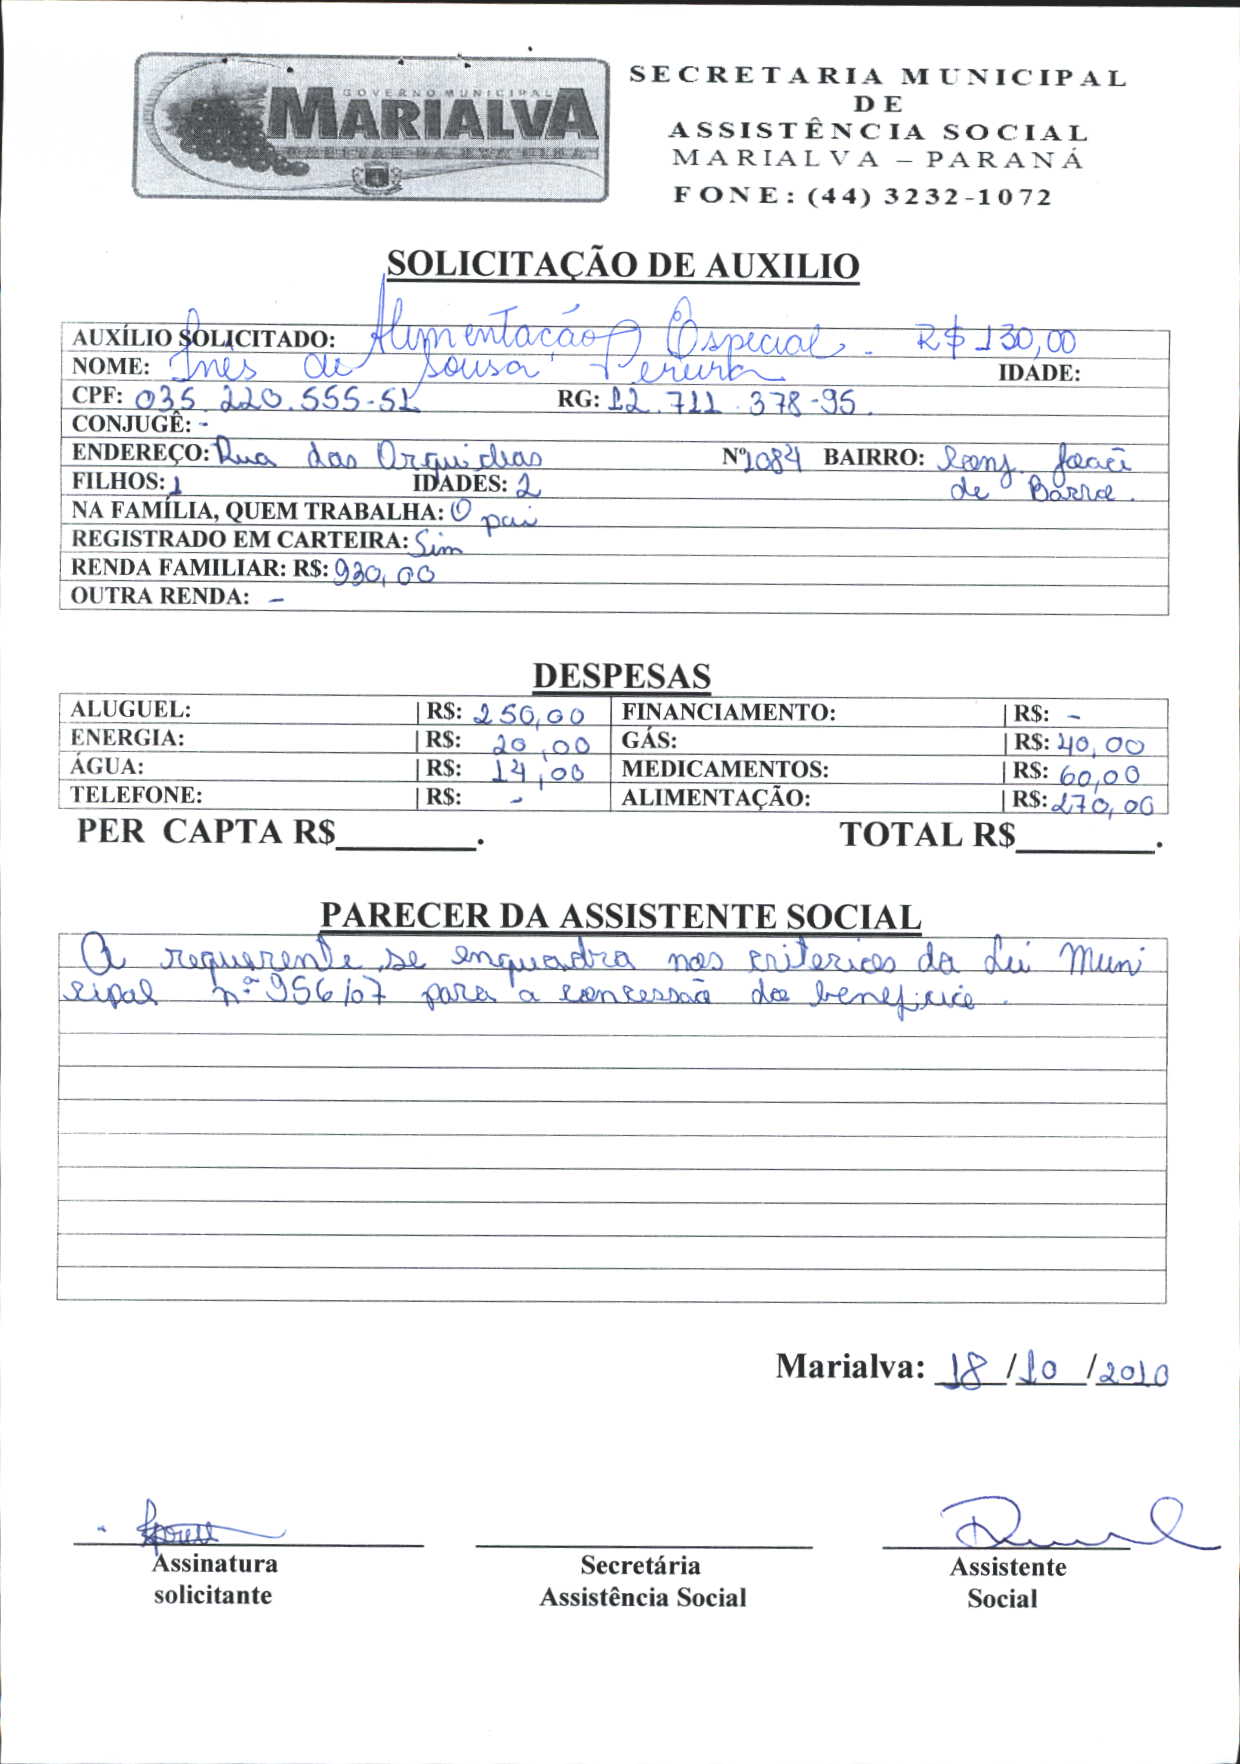 GOVERNO MUNICIPAL
MARIALVA
SECRETARIA MUNICIPAL
DE
ASSISTÊNCIA SOCIAL
MARIALVA – PARANÁ
FONE: (44) 3232-1072
SOLICITAÇÃO DE AUXILIO
AUXÍLIO SOLICITADO: Alimentação Especial - R$ 130,00
NOME: Inês de Sousa Pereira IDADE:
CPF: 035.220.555-51 RG: 12.711.378-95.
CONJUGÊ: -
ENDEREÇO: Rua das Orquideas Nº 1084 BAIRRO: Conj. João
FILHOS: 1 IDADES: 2 de Barro.
NA FAMÍLIA, QUEM TRABALHA: O pai
REGISTRADO EM CARTEIRA: Sim
RENDA FAMILIAR: R$: 930,00
OUTRA RENDA: -
DESPESAS
ALUGUEL: R$: 250,00 FINANCIAMENTO: R$: -
ENERGIA: R$: 20,00 GÁS: R$: 40,00
ÁGUA: R$: 14,00 MEDICAMENTOS: R$: 60,00
TELEFONE: R$: - ALIMENTAÇÃO: R$: 270,00
PER CAPTA R$________. TOTAL R$________.
PARECER DA ASSISTENTE SOCIAL
A requerente se enquadra nos criterios da Lei Muni
cipal nº 956/07 para a concessão do beneficio.
Marialva: 18/10/2010
Assinatura Secretária Assistente
solicitante Assistência Social Social